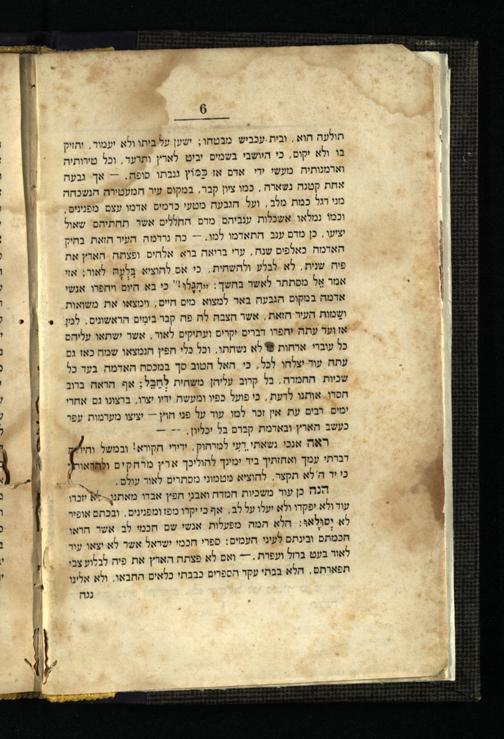 6
תולעה הוא, ובית עכביש מבטחו; ישען על ביתו ולא יעמוד, יחזיק
בו ולא יקום, כי היושבי בשמים יביט לארץ ותרעד, וכל טירותיה
וארמנותיה מעשי ידי אדם אז כַּמּוֹץ גנבתו סופה. — אך גבעה
אחת קטנה נשארה, כמו ציון קבר, במקום עיר המעטירה הנשכחה
מני רגל כמת מלב, ועל הגבעה מטעי כרמים אדמו עצם מפנינים,
וכמו נמלאו אשכלות ענביהם מדם החללים אשר תחתיהם שאול
יציעו, כן מדם ענב התאדמו למו. — כה נרדמה העיר הזאת בחיק
האדמה כאלפים שנה, עדי בריאה ברא אלהים ופצתה הארץ את
פיה שנית, לא לבלע ולהשחית, כי אם להוציא בִלֻעָהּ לאור; אזי
אמר אֵל מסתתר לאשר בחשך: „הִגָּלוּ!" כי בא היום ויחפרו אנשי
אדמה במקום הגבעה באר למצוא מים חיים, וימצאו את משואות
ושַמות העיר הזאת, אשר הצבה לה פה קבר בימים הראשונים, למן
אז ועד עתה יחפרו דברים יקרים ועתיקים לאור, אשר ישתאו עליהם
כל עוברי ארחות לא נשחתו, וכל כלי חפץ הנמצאו שמה כאז גם
עתה עוד יצלחו לכל, כי האל הטוב סך במכסה האדמה בעד כל
שכיות החמדה, בל קרוב עליהן משחית לְחַבֵּל; אף הראה ברוב
חסדו אותנו לדעת, כי פועל כפיו ומעשה ידיו יצרו, ברצונו גם אחרי
ימים רבים עת אין זכר למו עוד על פני חוץ — יציצו מערמות עפר
כעשב הארץ ובאדמת קברם בל יכליון. — —
ראה אנכי נשאתי דֵעִי למרחוק, ידידי הקורא! ובמשל וחידות
דברתי עמך ואחזתיך ביד ימינך להוליכך ארץ מרחקים ולהראותך
כי יד ה' לא תקצר, להוציא מטמוני מסתרים לאור עולם.
הנה כן עוד משכיות חמדה ואבני חפץ אבדו מאתנו, לא יזכרו
עוד ולא יפקדו ולא יעלו על לב, אף כי יקרו מפז ומפנינים, ובכתם אופיר
לא יְסוּלָאוּ: הלא המה מפעלות אנשי שם חכמי לב אשר הראו
חכמתם ובינתם לעיני העמים; ספרי חכמי ישראל אשר לא יצאו עוד
לאור בעט ברזל ועפרת. — ואם לא פצתה הארץ את פיה לבלוע צבי
תפארתם, הלא בבתי עקד הספרים כבבתי כלאים החבאו, ולא אלינו
נגה